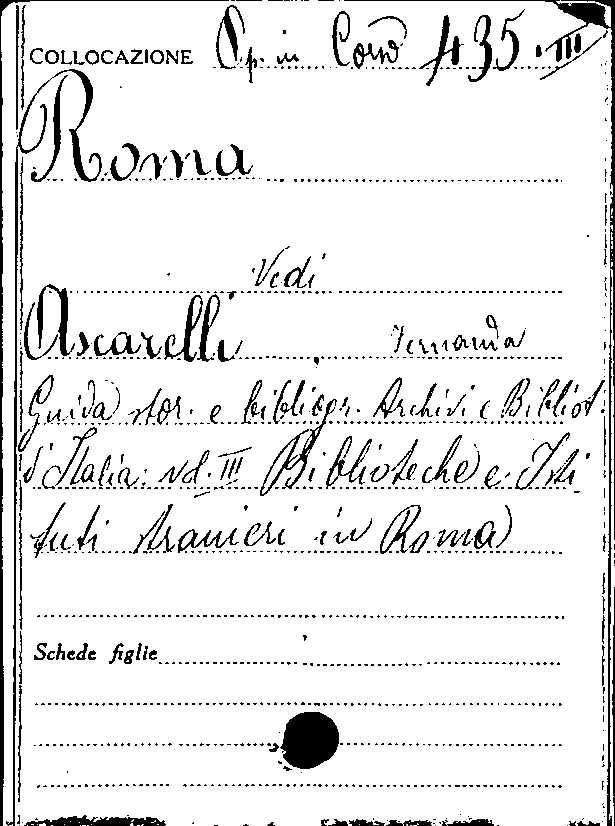 COLLOCAZIONE Op. in Corso 435.III
Roma
Vedi
Ascarelli, Fernanda
Guida stor. e bibliogr. Archivi e Bibliot.
d'Italia: vol. III Biblioteche e Isti
tuti stranieri in Roma
Schede figlie